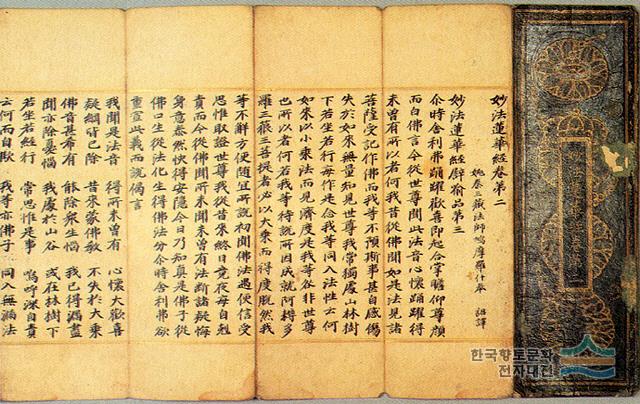 妙法蓮華經卷第二
姚秦三藏法師鳩摩羅什奉 詔譯
妙法蓮華經譬喻品第三
尒時舍利弗踊躍歡喜即起合掌瞻仰尊顏
而白佛言今從世尊聞此法音心懷踊躍得
未曾有所以者何我昔從佛聞如是法見諸
菩薩受記作佛而我等不預斯事甚自感傷
失於如來無量知見世尊我常獨處山林樹
下若坐若行每作是念我等同入法性云何
如來以小乘法而見濟度是我等咎非世尊
也所以者何若我等待說所因成就阿耨多
羅三藐三菩提者必以大乘而得度脫然我
等不解方便隨宜所說初聞佛法遇便信受
思惟取證世尊我從昔來終日竟夜每自剋
責而今從佛聞所未聞未曾有法斷諸疑悔
身意泰然快得安隱今日乃知真是佛子從
佛口生從法化生得佛法分尒時舍利弗欲
重宣此義而說偈言
我聞是法音 得所未曾有 心懷大歡喜
疑網皆已除 昔來蒙佛教 不失於大乘
佛音甚希有 能除衆生惱 我已得漏盡
聞亦除憂惱 我處於山谷 或在林樹下
若坐若經行 常思惟是事 嗚呼深自責
云何而自欺 我等亦佛子 同入無漏法
한국향토문화
전자대전